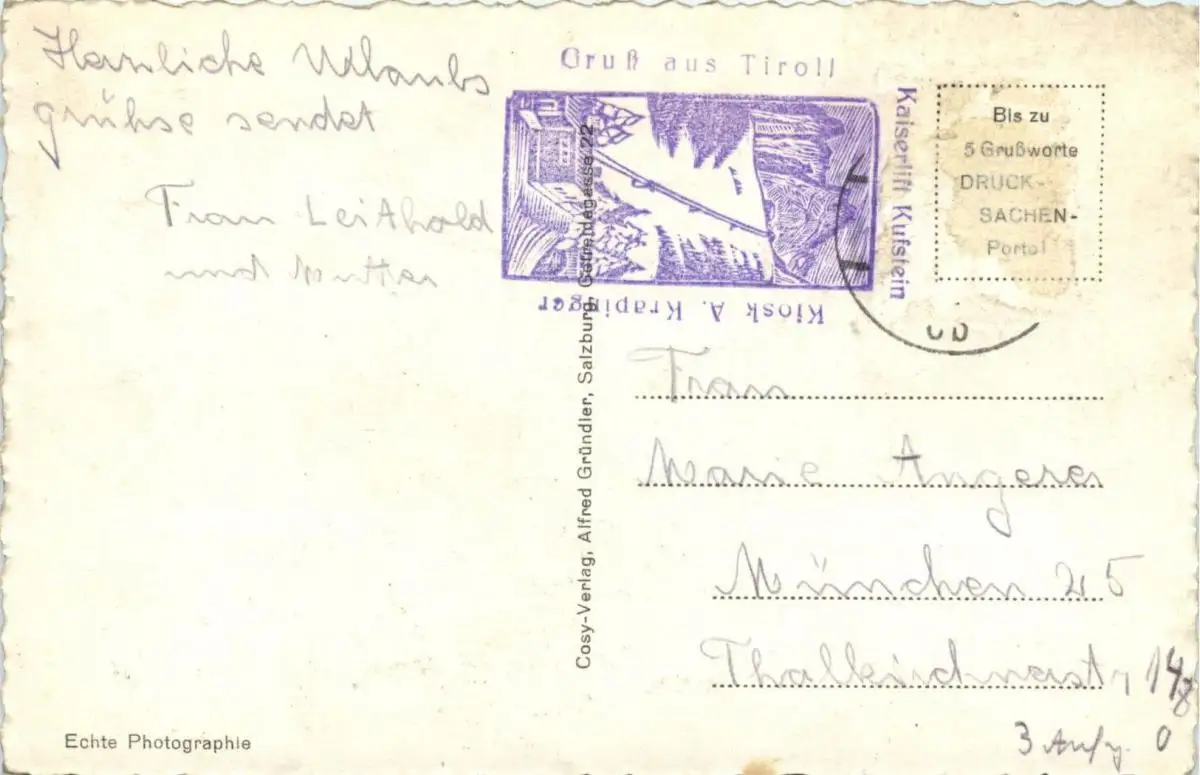 Herzliche Urlaubs
grühse sendet
Frau Leithold
und Mutter
Gruß aus Tirol!
Kaiserlift Kufstein
Kiosk A. Krapinger
Bis zu
5 Grußworte
DRUCK-
SACHEN-
Porto!
Cosy-Verlag, Alfred Gründler, Salzburg, Getreidegasse 22
Frau
Marie Angerer
München 25
Thalkirchnerstr
3 Aufg. 0
Echte Photographie